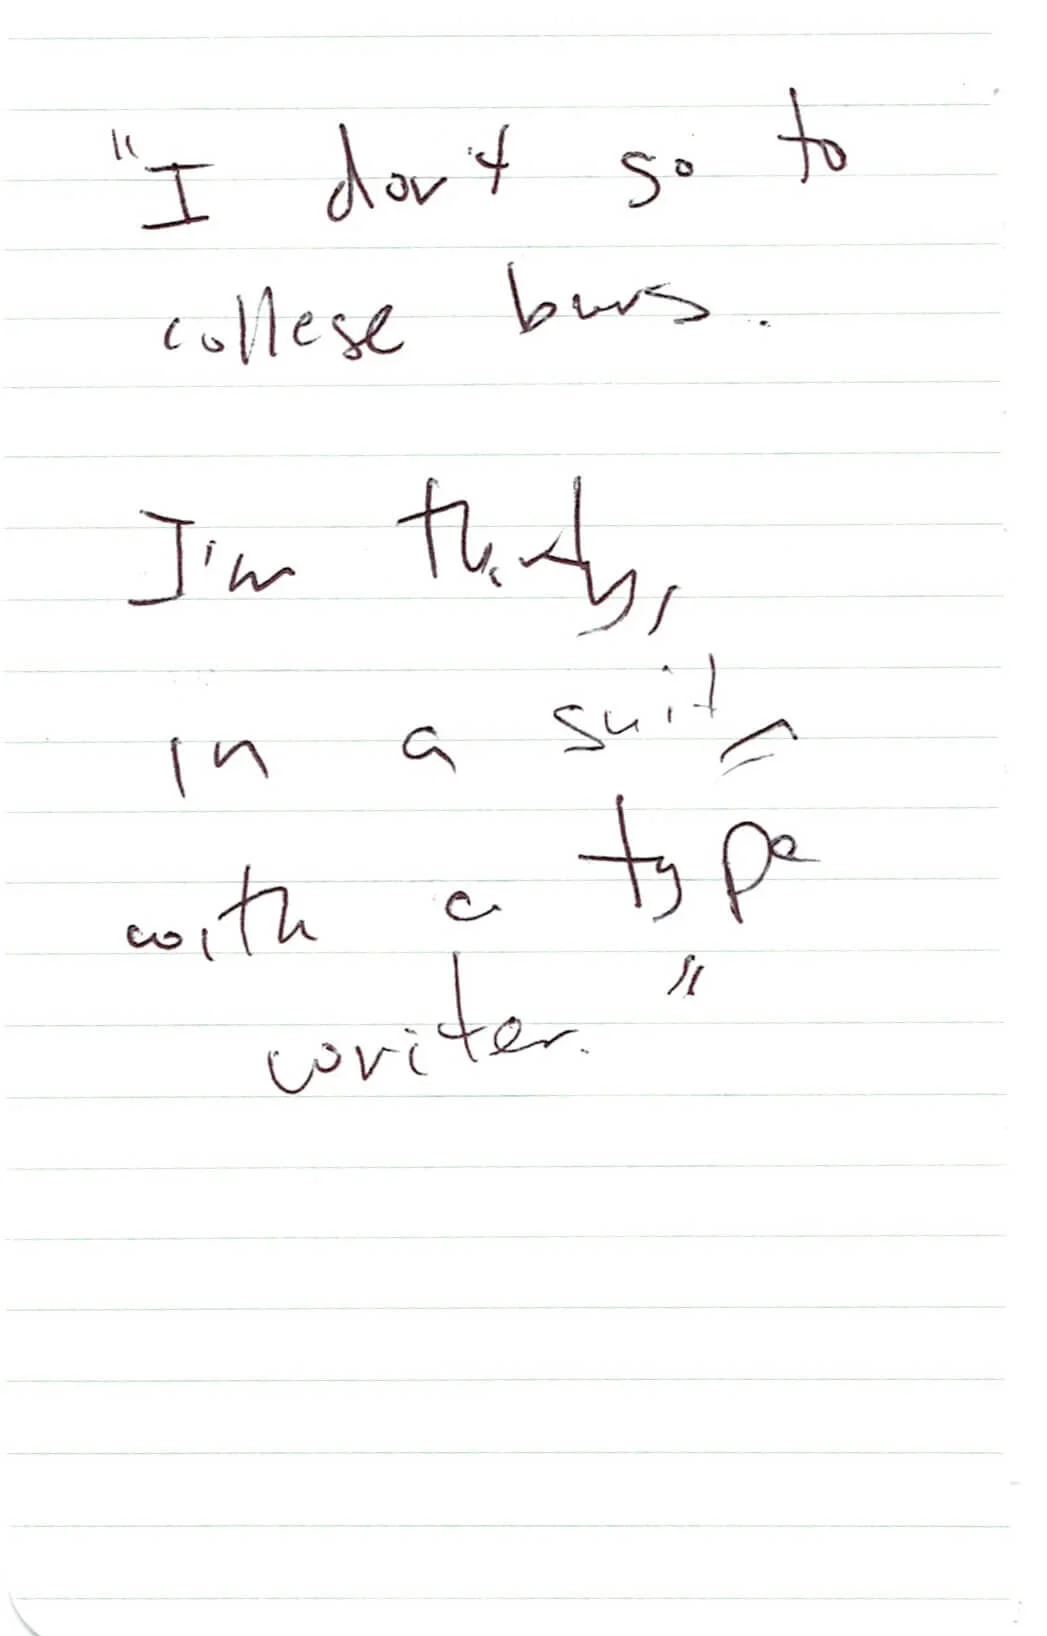 "I don't go to
college bars.
I'm thirty,
in a suit
with a type
writer."